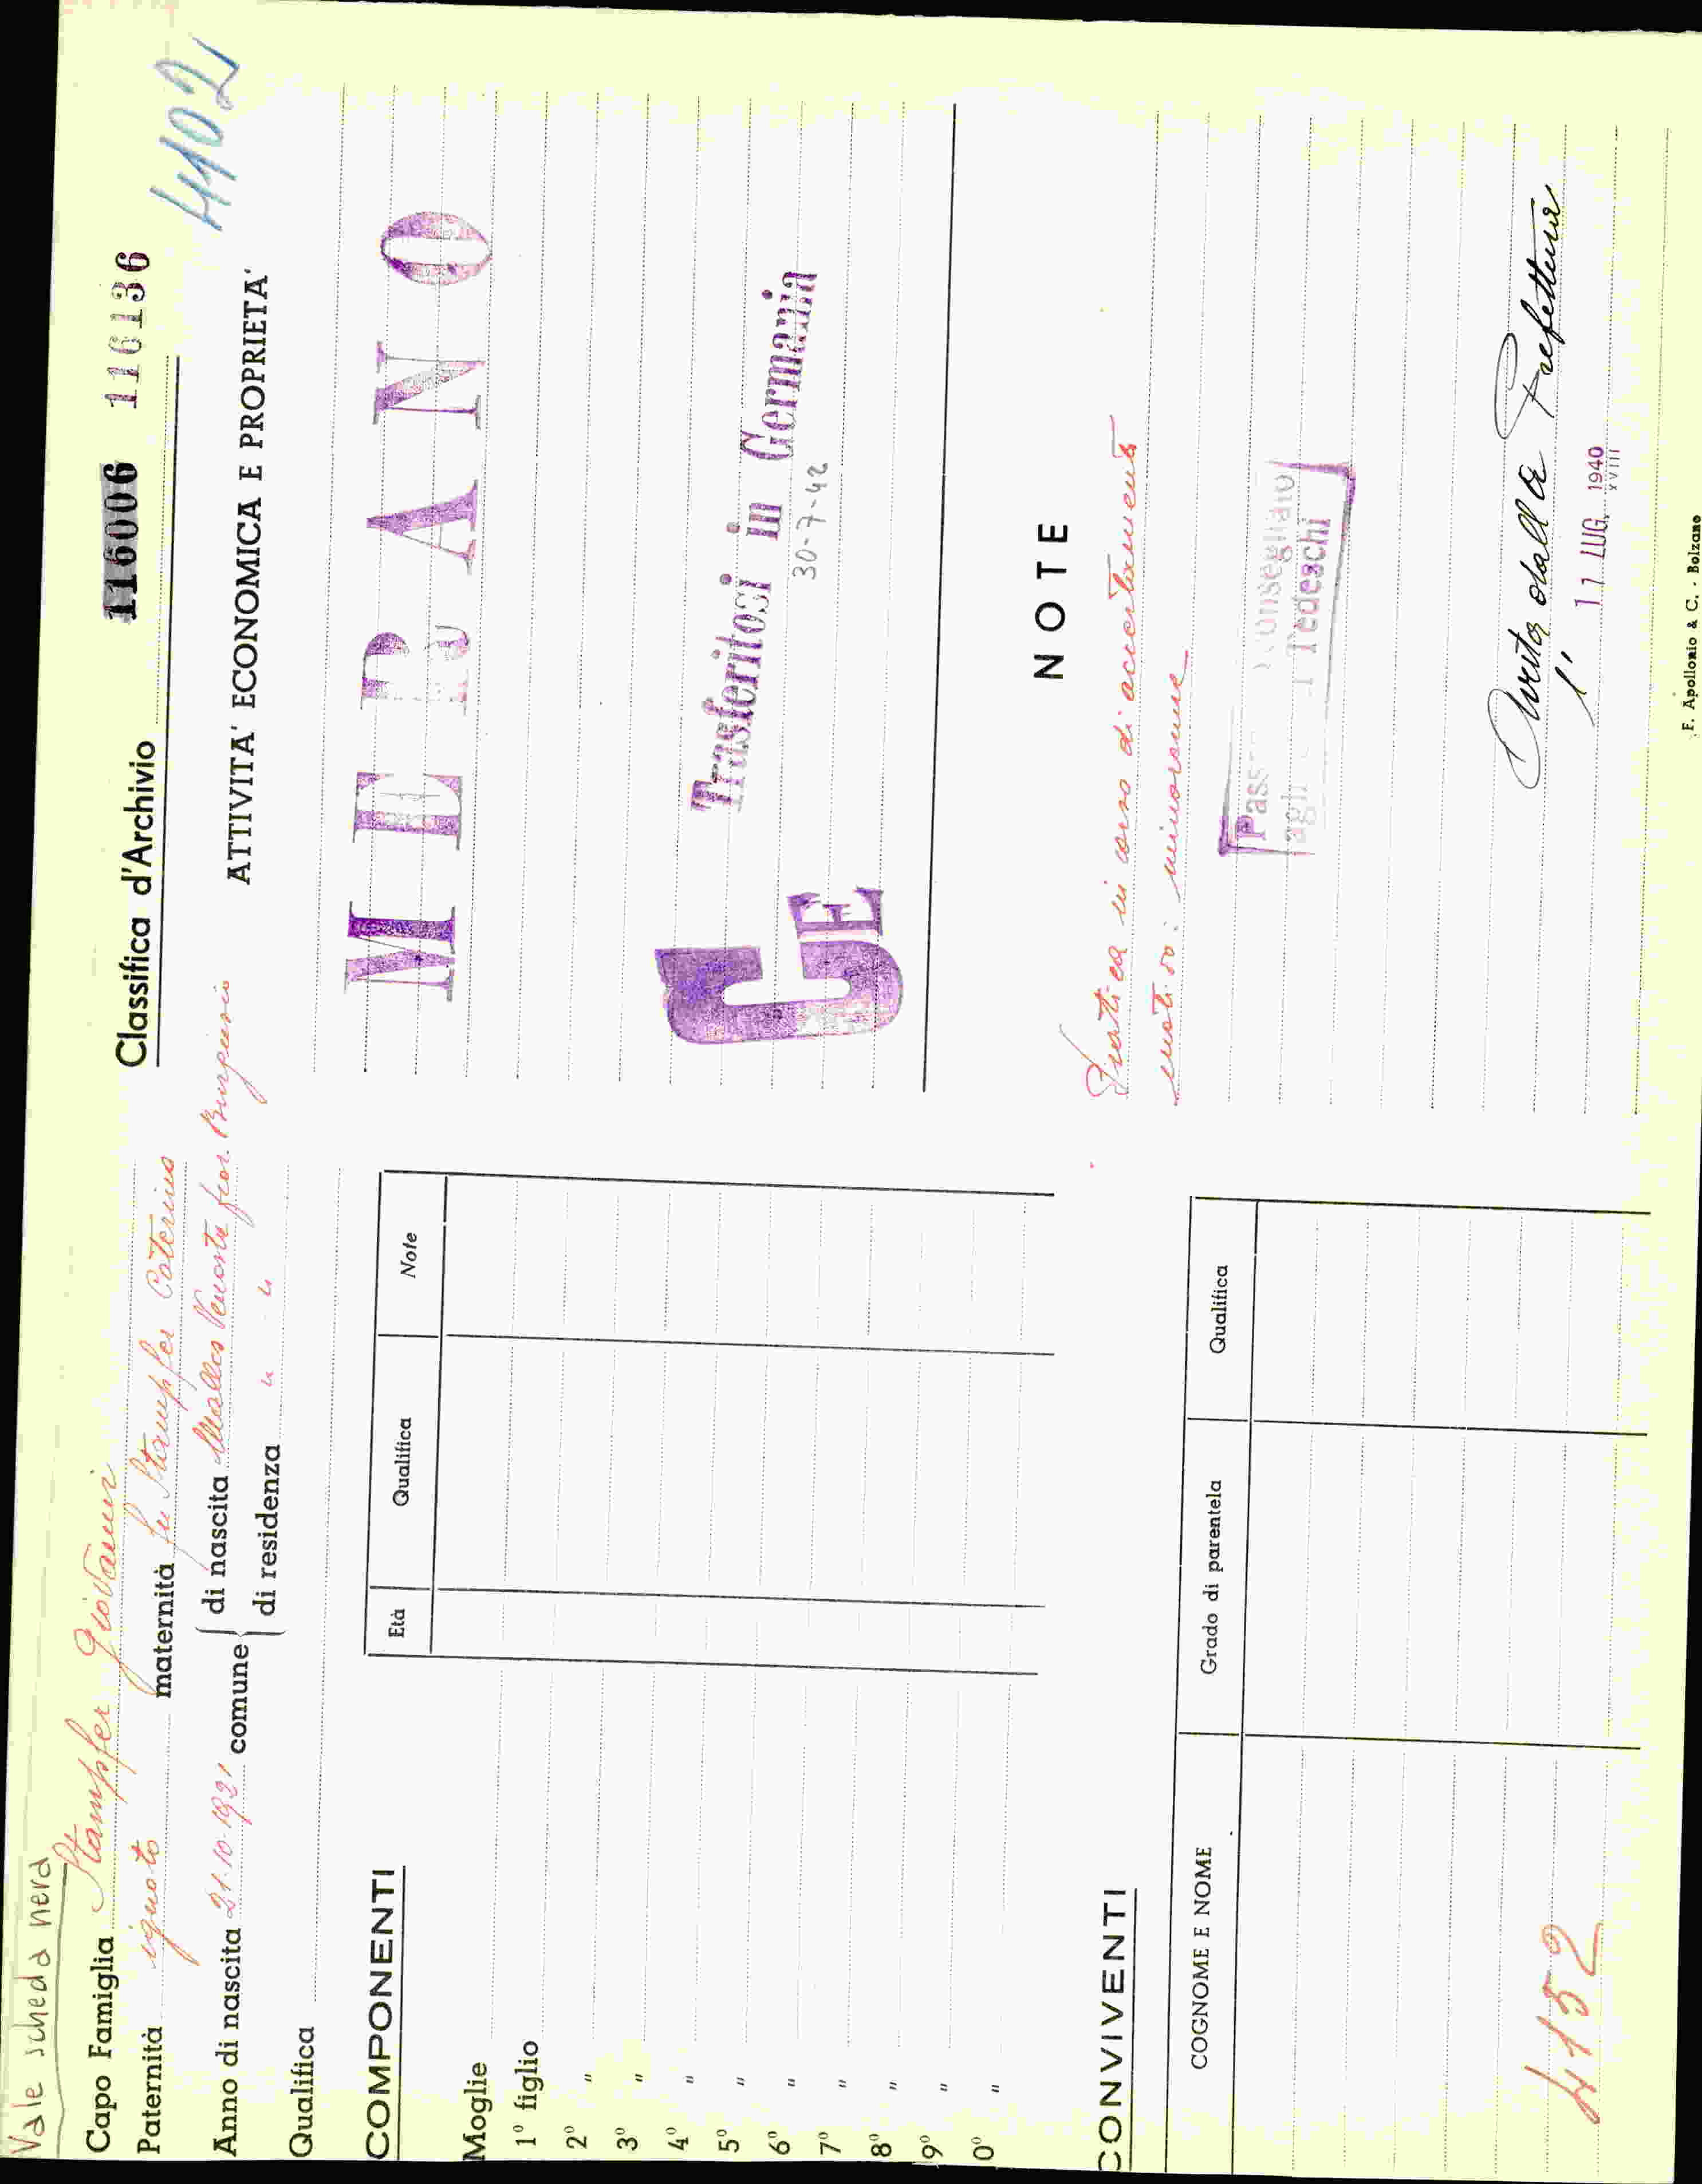 Vale scheda nera
Capo Famiglia Stampfer Giovanni
Paternità ignoto maternità fu Stampfer Caterina
Anno di nascita 21.10.1921 comune di nascita Malles Venosta fraz. Burgusio
di residenza " "
Qualifica
COMPONENTI
Età Qualifica Note
Moglie
1º figlio
2º "
3º "
4º "
5º "
6º "
7º "
8º "
9º "
0º "
CONVIVENTI
COGNOME E NOME Grado di parentela Qualifica
4152
Classifica d'Archivio 116006 116136
4102
ATTIVITA' ECONOMICA E PROPRIETA'
MERANO
Trasferitosi in Germania
30-7-42
GE
NOTE
Pratica in corso di accertamento
motivo: minorenne
Pass Consegnato
agli Tedeschi
dalla Prefettura
l' 11 LUG. 1940
XVIII
F. Apollonio & C. - Bolzano